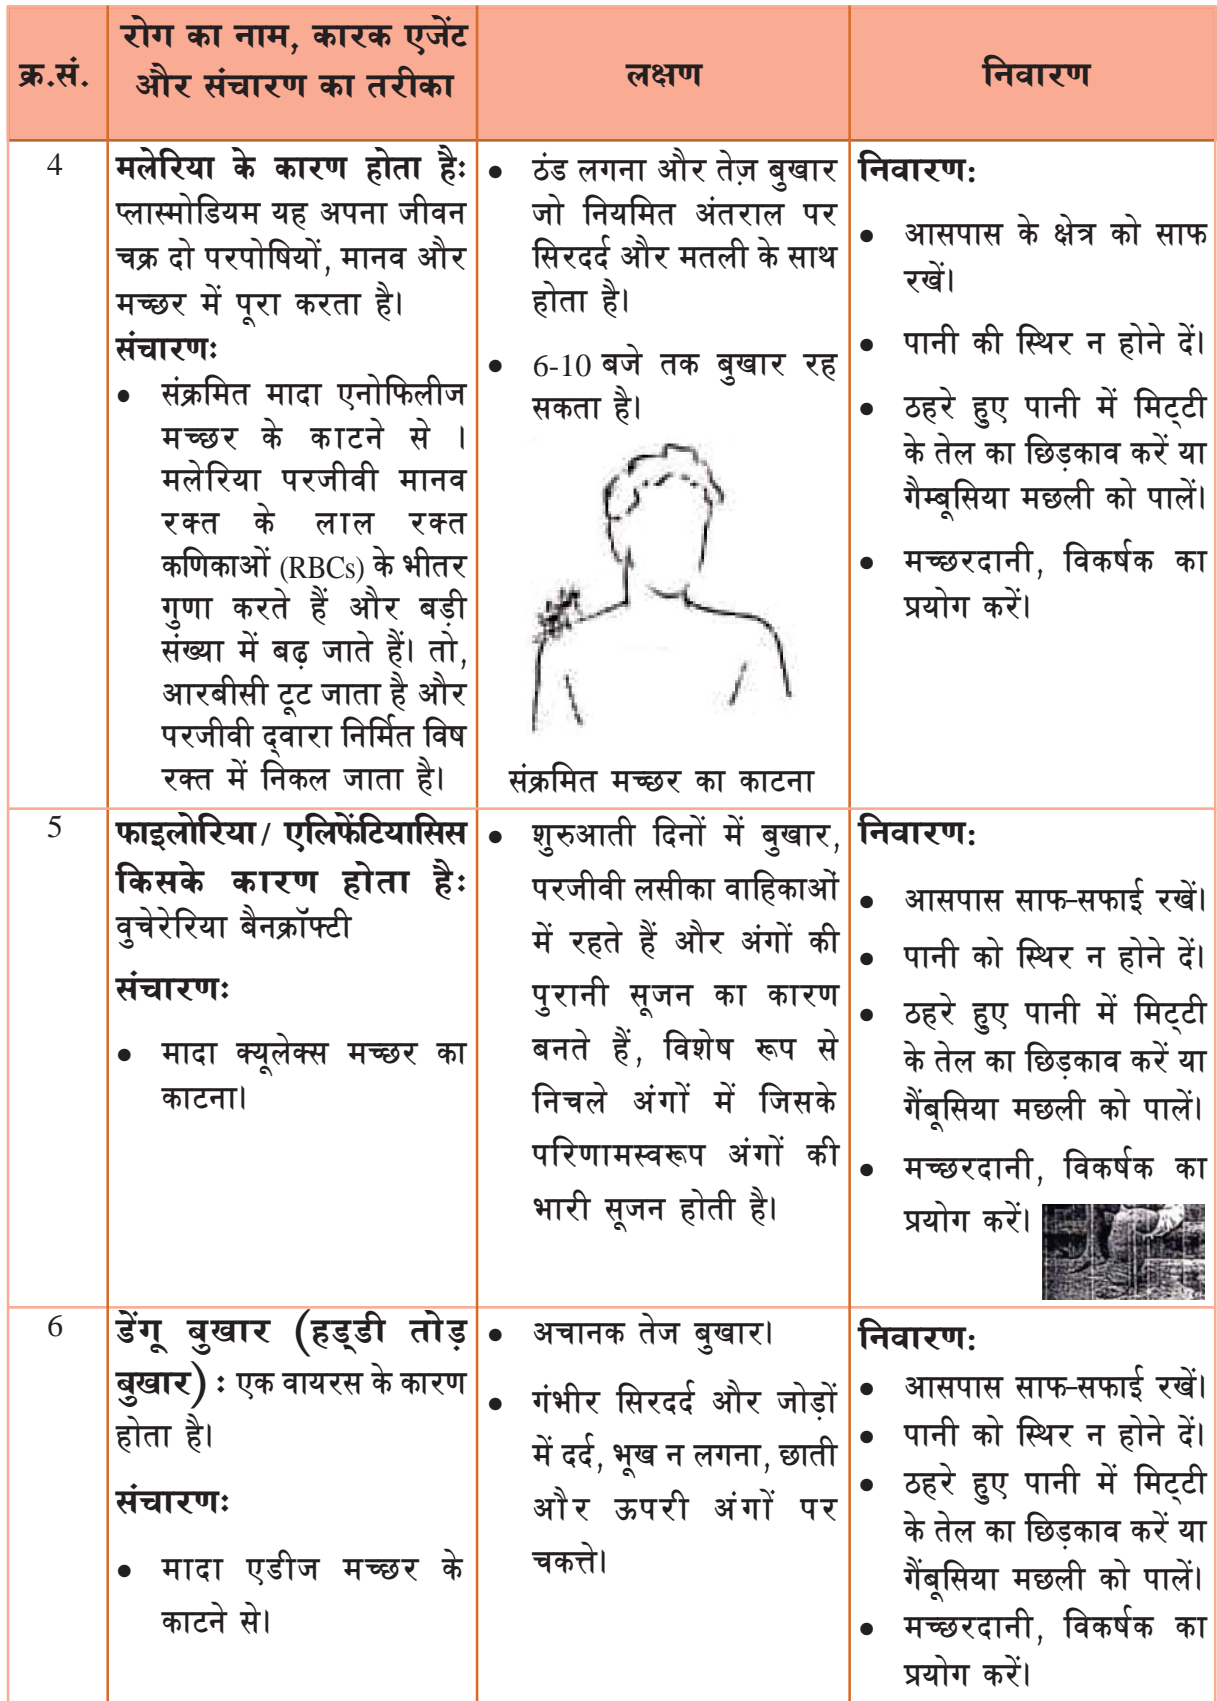 क्र.सं.
रोग का नाम, कारक एजेंट
और संचारण का तरीका
लक्षण
निवारण
4
मलेरिया के कारण होता हैः
प्लास्मोडियम यह अपना जीवन
चक्र दो परपोषियों, मानव और
मच्छर में पूरा करता है।
संचारणः
• संक्रमित मादा एनोफिलीज
मच्छर के काटने से ।
मलेरिया परजीवी मानव
रक्त के लाल रक्त
कणिकाओं (RBCs) के भीतर
गुणा करते हैं और बड़ी
संख्या में बढ़ जाते हैं। तो,
आरबीसी टूट जाता है और
परजीवी द्वारा निर्मित विष
रक्त में निकल जाता है।
• ठंड लगना और तेज़ बुखार
जो नियमित अंतराल पर
सिरदर्द और मतली के साथ
होता है।
• 6-10 बजे तक बुखार रह
सकता है।
संक्रमित मच्छर का काटना
निवारण:
• आसपास के क्षेत्र को साफ
रखें।
• पानी की स्थिर न होने दें।
• ठहरे हुए पानी में मिट्टी
के तेल का छिड़काव करें या
गैम्बूसिया मछली को पालें।
• मच्छरदानी, विकर्षक का
प्रयोग करें।
5
फाइलोरिया/ एलिफेंटियासिस
किसके कारण होता हैः
वुचेरेरिया बैनक्रॉफ्टी
संचारणः
• मादा क्यूलेक्स मच्छर का
काटना।
• शुरुआती दिनों में बुखार,
परजीवी लसीका वाहिकाओं
में रहते हैं और अंगों की
पुरानी सूजन का कारण
बनते हैं, विशेष रूप से
निचले अंगों में जिसके
परिणामस्वरूप अंगों की
भारी सूजन होती है।
निवारण:
• आसपास साफ-सफाई रखें।
• पानी को स्थिर न होने दें।
• ठहरे हुए पानी में मिट्टी
के तेल का छिड़काव करें या
गैंबूसिया मछली को पालें।
• मच्छरदानी, विकर्षक का
प्रयोग करें।
6
डेंगू बुखार (हड्डी तोड़
बुखार) ः एक वायरस के कारण
होता है।
संचारणः
• मादा एडीज मच्छर के
काटने से।
• अचानक तेज बुखार।
• गंभीर सिरदर्द और जोड़ों
में दर्द, भूख न लगना, छाती
और ऊपरी अंगों पर
चकत्ते।
निवारण:
• आसपास साफ-सफाई रखें।
• पानी को स्थिर न होने दें।
• ठहरे हुए पानी में मिट्टी
के तेल का छिड़काव करें या
गैंबूसिया मछली को पालें।
• मच्छरदानी, विकर्षक का
प्रयोग करें।